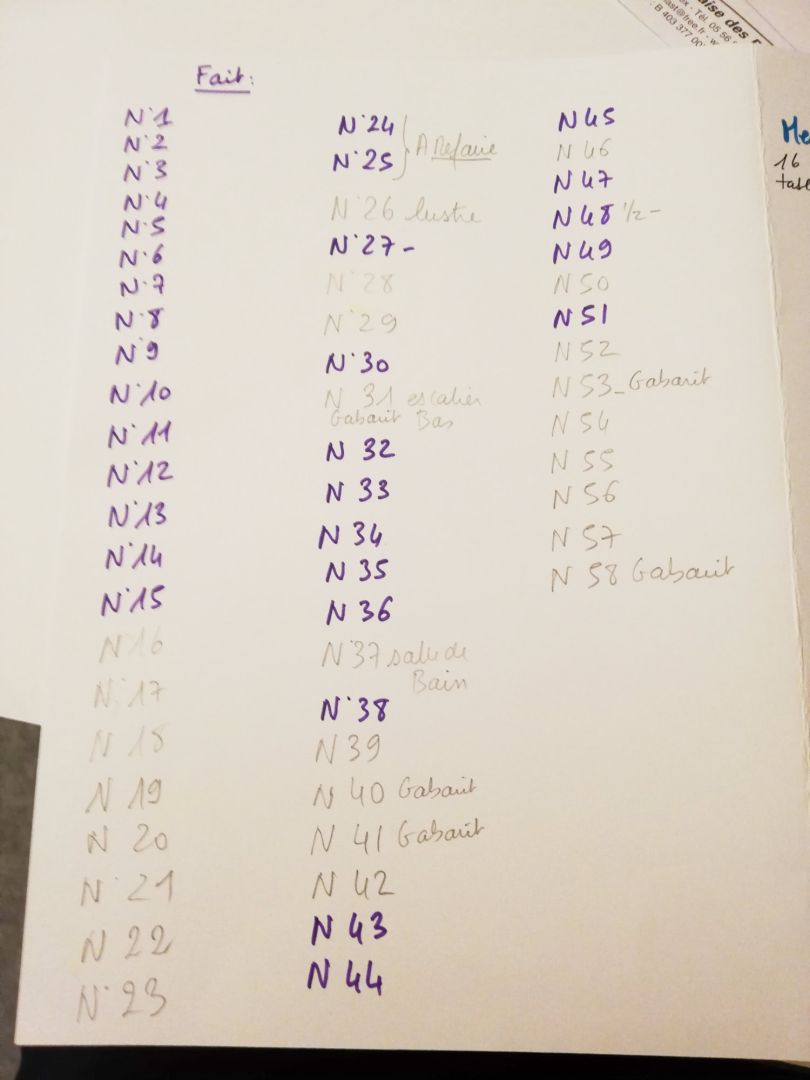 Fait:
N°1
N°2
N°3
N°4
N°5
N°6
N°7
N°8
N°9
N°10
N°11
N°12
N°13
N°14
N°15
N°16
N°17
N°18
N 19
N 20
N°21
N 22
N°23
N°24
N°25
A Refaire
N°26 lustre
N°27-
N°28
N°29
N°30
N 31 escalier
Gabarit Bas
N 32
N 33
N 34
N 35
N 36
N°37 salle de
Bain
N°38
N 39
N 40 Gabarit
N 41 Gabarit
N 42
N 43
N 44
N 45
N 46
N 47
N 48 1/2-
N 49
N 50
N 51
N 52
N 53_Gabarit
N 54
N 55
N 56
N 57
N 58 Gabarit
aise des
Tél. 05 56
@free.fr - w
B 403 377 00
Me
16
tabl